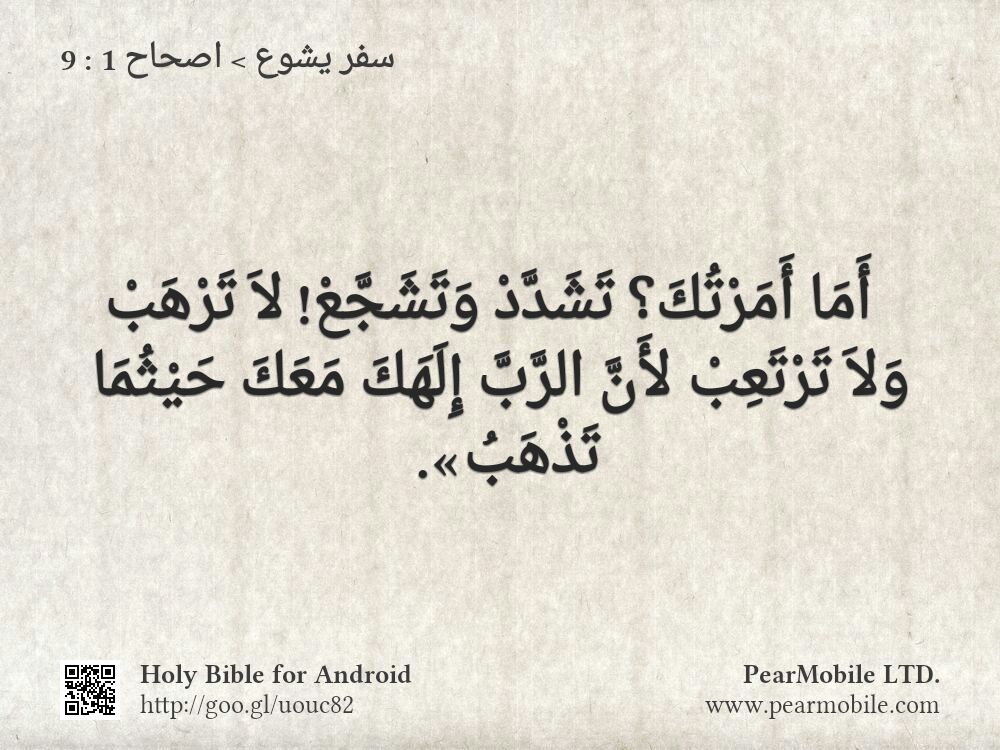 سفر يشوع > اصحاح 1 : 9
أَمَا أَمَرْتُكَ؟ تَشَدَّدْ وَتَشَجَّعْ! لاَ تَرْهَبْ
وَلاَ تَرْتَعِبْ لأَنَّ الرَّبَّ إِلَهَكَ مَعَكَ حَيْثُمَا
تَذْهَبُ».
Holy Bible for Android
http://goo.gl/uouc82
PearMobile LTD.
www.pearmobile.com